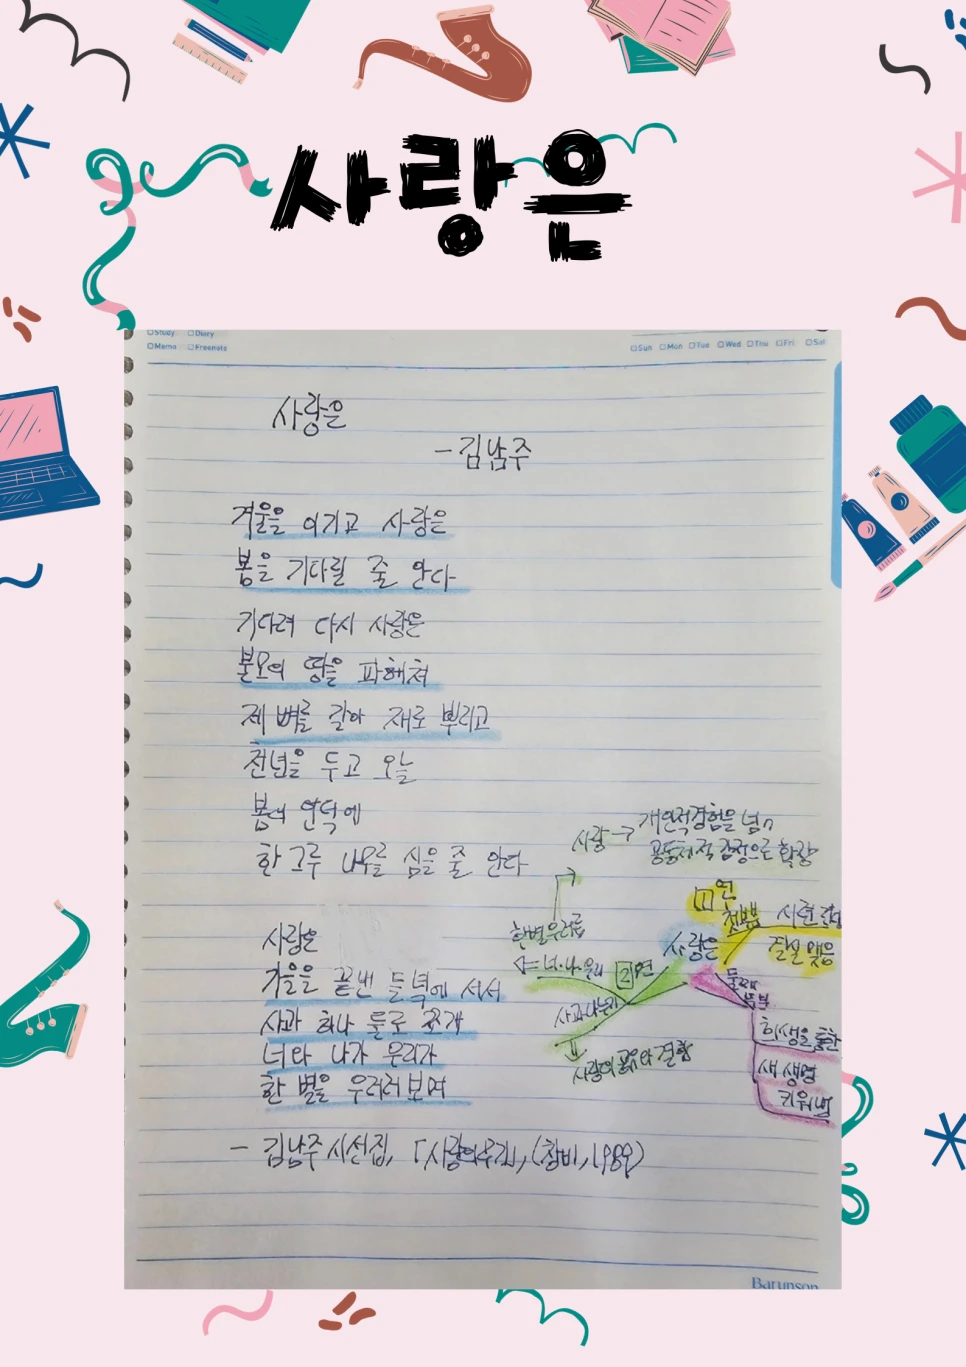 사랑은
□Study □Diary
□Memo □Freenote
□Sun □Mon □Tue □Wed □Thu □Fri □Sat
사랑은
- 김남주
겨울을 이기고 사랑은
봄을 기다릴 줄 안다
기다려 다시 사랑은
불모의 땅을 파헤쳐
제 뼈를 갈아 재로 뿌리고
천년을 두고 오늘
봄의 언덕에
한 그루 나무를 심을 줄 안다
사랑은
가을을 끝낸 들녘에 서서
사과 하나 둘로 쪼개
너와 나와 우리가
한 별을 우러러보며
- 김남주 시선집, 「사랑의 무기」, (창비, 1989)
사랑 → 개인적 경험을 넘어
공동체적 감정으로 확장
한 별 우러름
⇐ 너·나·우리
2연
사과 나누기
⇓
사랑의 공유와 결합
사랑은
1연
첫부분
시련 극복
결실 맺음
둘째 부분
희생을 통한
새 생명
키워냄
Barunson